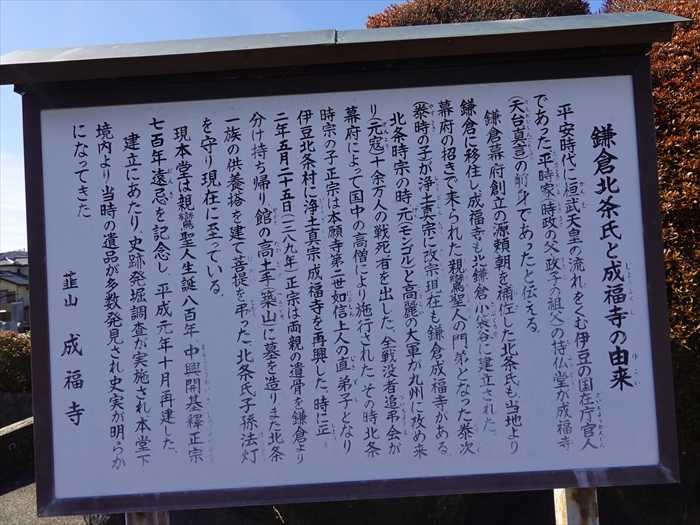 鎌倉北条氏と成福寺の由来
平安時代に桓武天皇の流れをくむ伊豆の国在庁官人
であった平時家(時政の父、政子の祖父)の持仏堂が成福寺
(天台真言)の前身であったと伝える。
鎌倉幕府創立の源頼朝を補佐した北条氏も当地より
鎌倉に移住し、成福寺も北鎌倉小袋谷に建立された。
幕府の招きで来られた親鸞聖人の門弟となった泰次
(泰時の子)が浄土真宗に改宗、現在も鎌倉成福寺がある。
北条時宗の時、元(モンゴル)と高麗の大軍が九州に攻め来
り(元寇)十余万人の戦死者を出した。全戦没者追弔会が
幕府によって国中の高僧により施行された。その時北条
時宗の子正宗は本願寺第二世如信上人の直弟子となり
伊豆北条村に浄土真宗、成福寺を再興した。時に正応
二年五月二十五日(一二八九年)正宗は両親の遺骨を鎌倉より
分け持ち帰り、館の高土手(築山)に墓を造りまた北条
一族の供養塔を建て菩提を弔った、北条氏子孫法灯
を守り現在に至っている。
現本堂は親鸞聖人生誕八百年、中興開基釋正宗
七百年遠忌を記念し、平成元年十月再建した、
建立にあたり、史跡発掘調査が実施され本堂下
境内より当時の遺品が多数発見され史実が明らか
になってきた。
韮山 成福寺